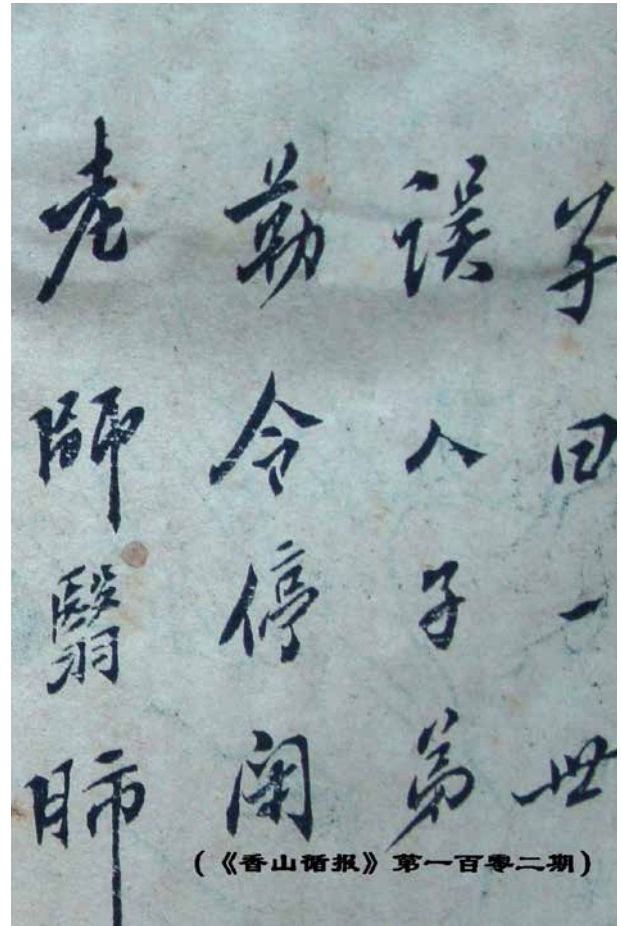 一世
误人子弟
勒令停闭
老師翳肺
(《香山循报》第一百零二期)